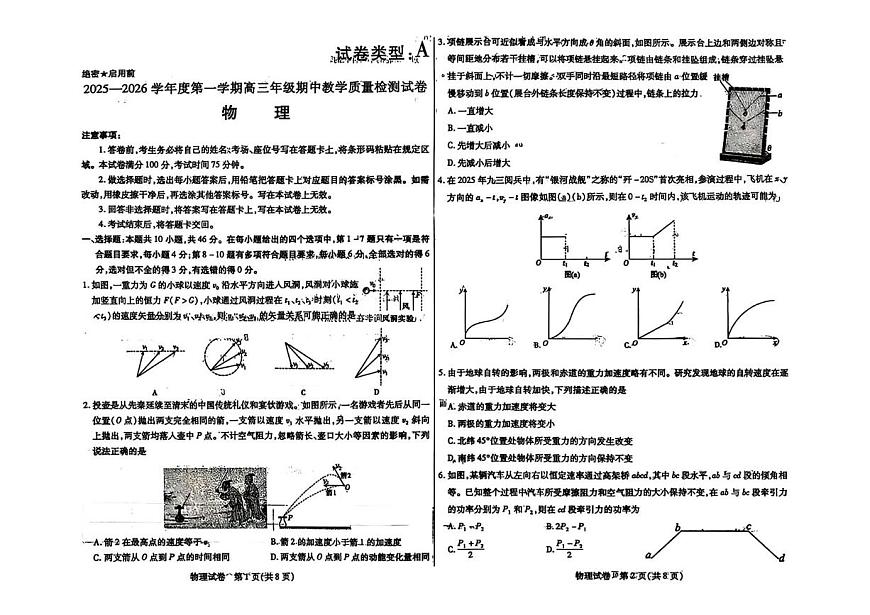 试卷类型:A
绝密★启用前
2025—2026 学年度第一学期高三年级期中教学质量检测试卷
物 理
注意事项:
1. 答卷前,考生务必将自己的姓名、考场、座位号写在答题卡上,将条形码粘贴在规定区
域。本试卷满分 100 分,考试时间 75 分钟。
2. 做选择题时,选出每小题答案后,用铅笔把答题卡上对应题目的答案标号涂黑。如需
改动,用橡皮擦干净后,再选涂其他答案标号。写在本试卷上无效。
3. 回答非选择题时,将答案写在答题卡上,写在本试卷上无效。
4. 考试结束后,将答题卡交回。
一、选择题:本题共 10 小题,共 46 分。在每小题给出的四个选项中,第 1-7 题只有一项是符
合题目要求,每小题 4 分;第 8-10 题有多项符合题目要求,每小题 6 分,全部选对的得 6
分,选对但不全的得 3 分,有选错的得 0 分。
1. 如图,一重力为 G 的小球以速度 v₀ 沿水平方向进入风洞,风洞对小球施
加竖直向上的恒力 F(F>G),小球通过风洞过程在 t₁、t₂、t₃ 时刻(t₁<t₂
<t₃)的速度矢量分别为 v₁、v₂、v₃,则 v₁、v₂、v₃ 的矢量关系可能正确的是
v₀
F
风
A B C D
2. 投壶是从先秦延续至清末的中国传统礼仪和宴饮游戏。如图所示,一名游戏者先后从同一
位置(O 点)抛出两支完全相同的箭,一支箭以速度 v₁ 水平抛出,另一支箭以速度 v₂ 斜向
上抛出,两支箭均落入壶中 P 点。不计空气阻力,忽略箭长、壶口大小等因素的影响,下列
说法正确的是
v₂
箭2
v₁
O
箭1
P
A. 箭 2 在最高点的速度等于 v₁ B. 箭 2 的加速度小于箭 1 的加速度
C. 两支箭从 O 点到 P 点的时间相同 D. 两支箭从 O 点到 P 点的动能变化量相同
物理试卷 第 1 页(共 8 页)
3. 项链展示台可近似看成与水平方向成 θ 角的斜面,如图所示。展示台上边和两侧边对称且
等间距地分布若干挂槽,可以将项链悬挂起来。项链由链条和挂坠组成,链条穿过挂坠悬
挂于斜面上,不计一切摩擦。双手同时沿最短路径将项链由 a 位置缓
慢移动到 b 位置(展台外链条长度保持不变)过程中,链条上的拉力
A. 一直增大
B. 一直减小
C. 先增大后减小
D. 先减小后增大
挂槽
a
b
θ
4. 在 2025 年九三阅兵中,有“银河战舰”之称的“歼-20S”首次亮相,参演过程中,飞机在 x、y
方向的 aₓ-t,vᵧ-t 图像如图(a)(b)所示,则在 0-t₂ 时间内,该飞机运动的轨迹可能为
aₓ
O t₁ t₂ t
图(a)
vᵧ
O t₁ t₂ t
图(b)
A. B. C. D.
5. 由于地球自转的影响,两极和赤道的重力加速度略有不同。研究发现地球的自转速度在逐
渐增大,由于地球自转加快,下列描述正确的是
A. 赤道的重力加速度将变大
B. 两极的重力加速度将变小
C. 北纬 45°位置处物体所受重力的方向发生改变
D. 南纬 45°位置处物体所受重力的方向保持不变
6. 如图,某辆汽车从左向右以恒定速率通过高架桥 abcd,其中 bc 段水平,ab 与 cd 段的倾角相
等。已知整个过程中汽车所受摩擦阻力和空气阻力的大小保持不变,在 ab 与 bc 段牵引力
的功率分别为 P₁ 和 P₂,则在 cd 段牵引力的功率为
A. P₁-P₂ B. 2P₂-P₁
C. (P₁+P₂)/2 D. (P₁-P₂)/2
a b c d
物理试卷 第 2 页(共 8 页)